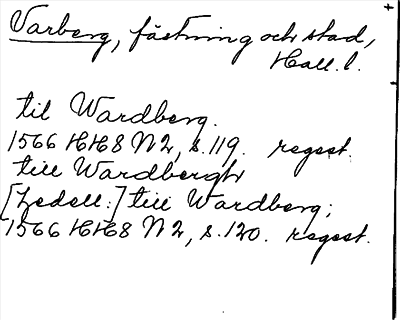 Varberg, fästning och stad,
Hall. l.
til Wardberg.
1566 HH8 N 2, s. 119. regest.
till Wardbergh
[Zedell:] till Wardberg;
1566 HH8 N 2, s. 120. regest.